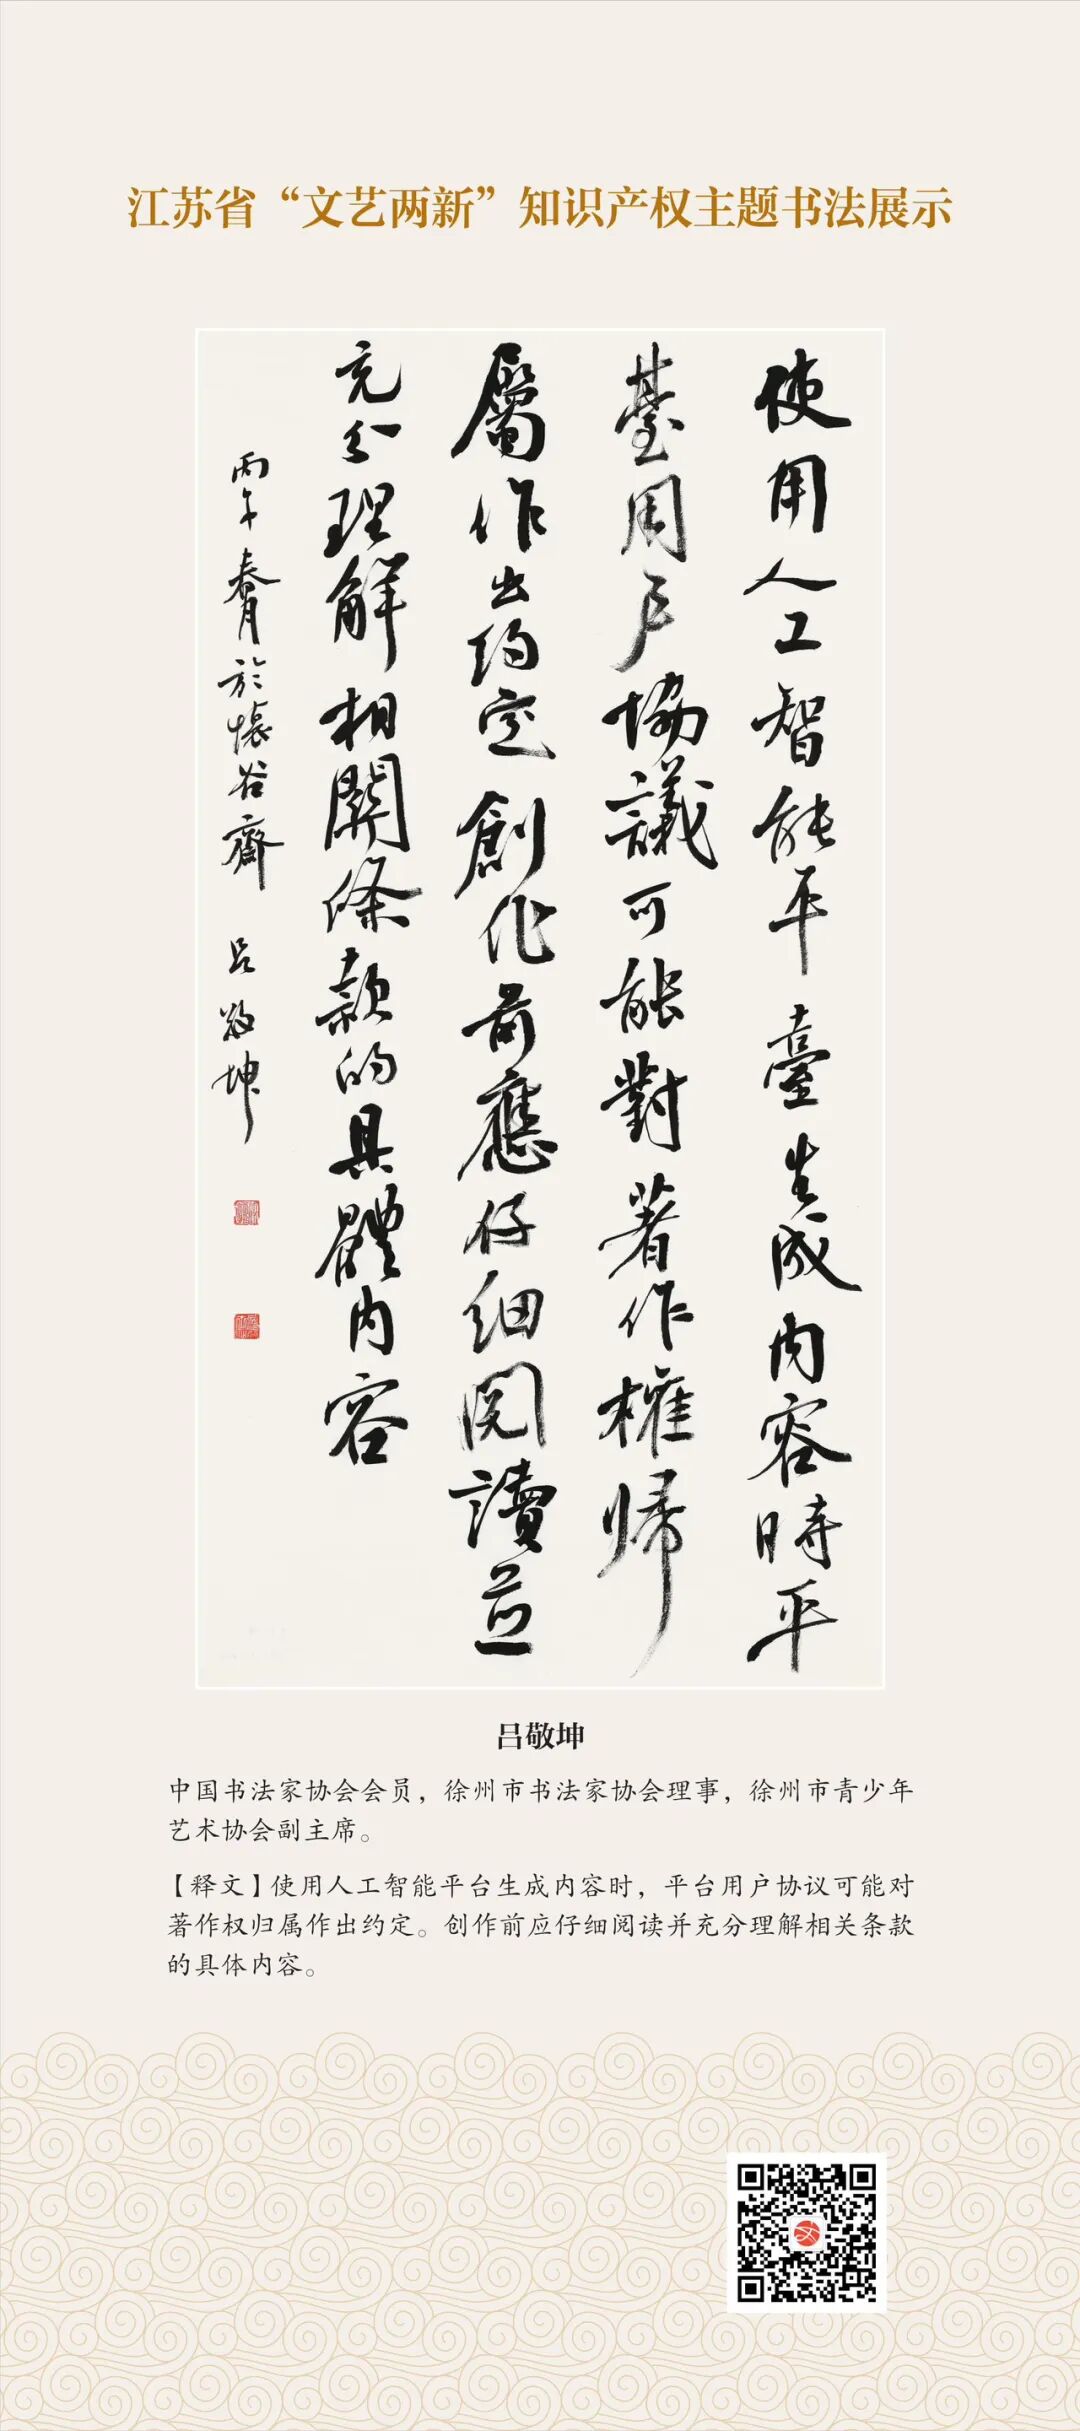 江苏省“文艺两新”知识产权主题书法展示
使用人工智能平臺生成内容時平
臺用户協議可能對著作權歸
屬作出约定創作前應仔细閱讀並
充分理解相關條款的具體内容
丙午春月於懷谷齋 吕敬坤
吕敬坤
中国书法家协会会员，徐州市书法家协会理事，徐州市青少年
艺术协会副主席。
【释文】使用人工智能平台生成内容时，平台用户协议可能对
著作权归属作出约定。创作前应仔细阅读并充分理解相关条款
的具体内容。